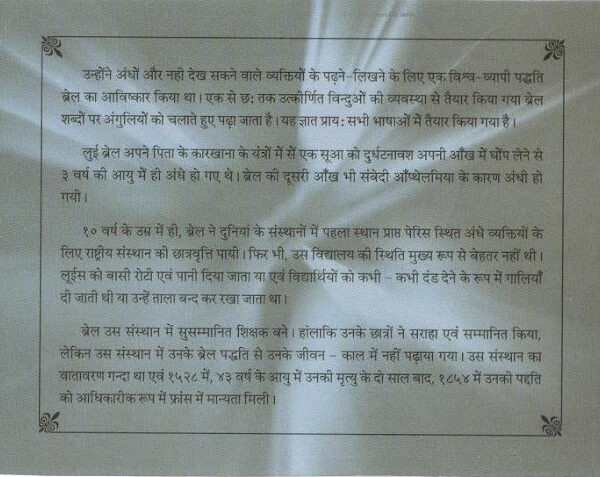 उन्होंने अंधों और नही देख सकने वाले व्यक्तियों के पढ़ने-लिखने के लिए एक विश्व-व्यापी पद्धति
ब्रेल का आविष्कार किया था। एक से छ: तक उत्कीर्णित विन्दुओं की व्यवस्था से तैयार किया गया ब्रेल
शब्दों पर अंगुलियों को चलाते हुए पढ़ा जाता है। यह ज्ञात प्राय: सभी भाषाओं में तैयार किया गया है।
लुई ब्रेल अपने पिता के कारखाना के यंत्रों में से एक सूआ को दुर्घटनावश अपनी आँख में घोंप लेने से
३ वर्ष की आयु में ही अंधे हो गए थे। ब्रेल की दूसरी आँख भी संबेदी ऑप्थेलमिया के कारण अंधी हो
गयी।
१० वर्ष के उम्र में ही, ब्रेल ने दुनियां के संस्थानों में पहला स्थान प्राप्त पेरिस स्थित अंधे व्यक्तियों के
लिए राष्ट्रीय संस्थान की छात्रवृत्ति पायी। फिर भी, उस विद्यालय की स्थिति मुख्य रूप से बेहतर नहीं थी।
लूईस को बासी रोटी एवं पानी दिया जाता था एवं विद्यार्थियों को कभी - कभी दंड देने के रूप में गालियाँ
दी जाती थी या उन्हें ताला बन्द कर रखा जाता था।
ब्रेल उस संस्थान में सुसम्मानित शिक्षक बने। हांलाकि उनके छात्रों ने सराहा एवं सम्मानित किया,
लेकिन उस संस्थान में उनके ब्रेल पद्धति से उनके जीवन - काल में नहीं पढ़ाया गया। उस संस्थान का
वातावरण गन्दा था एवं १५२८ में, ४३ वर्ष के आयु में उनकी मृत्यु के दो साल बाद, १८५४ में उनकी पद्दति
को आधिकारीक रूप में फ्रांस में मान्यता मिली।